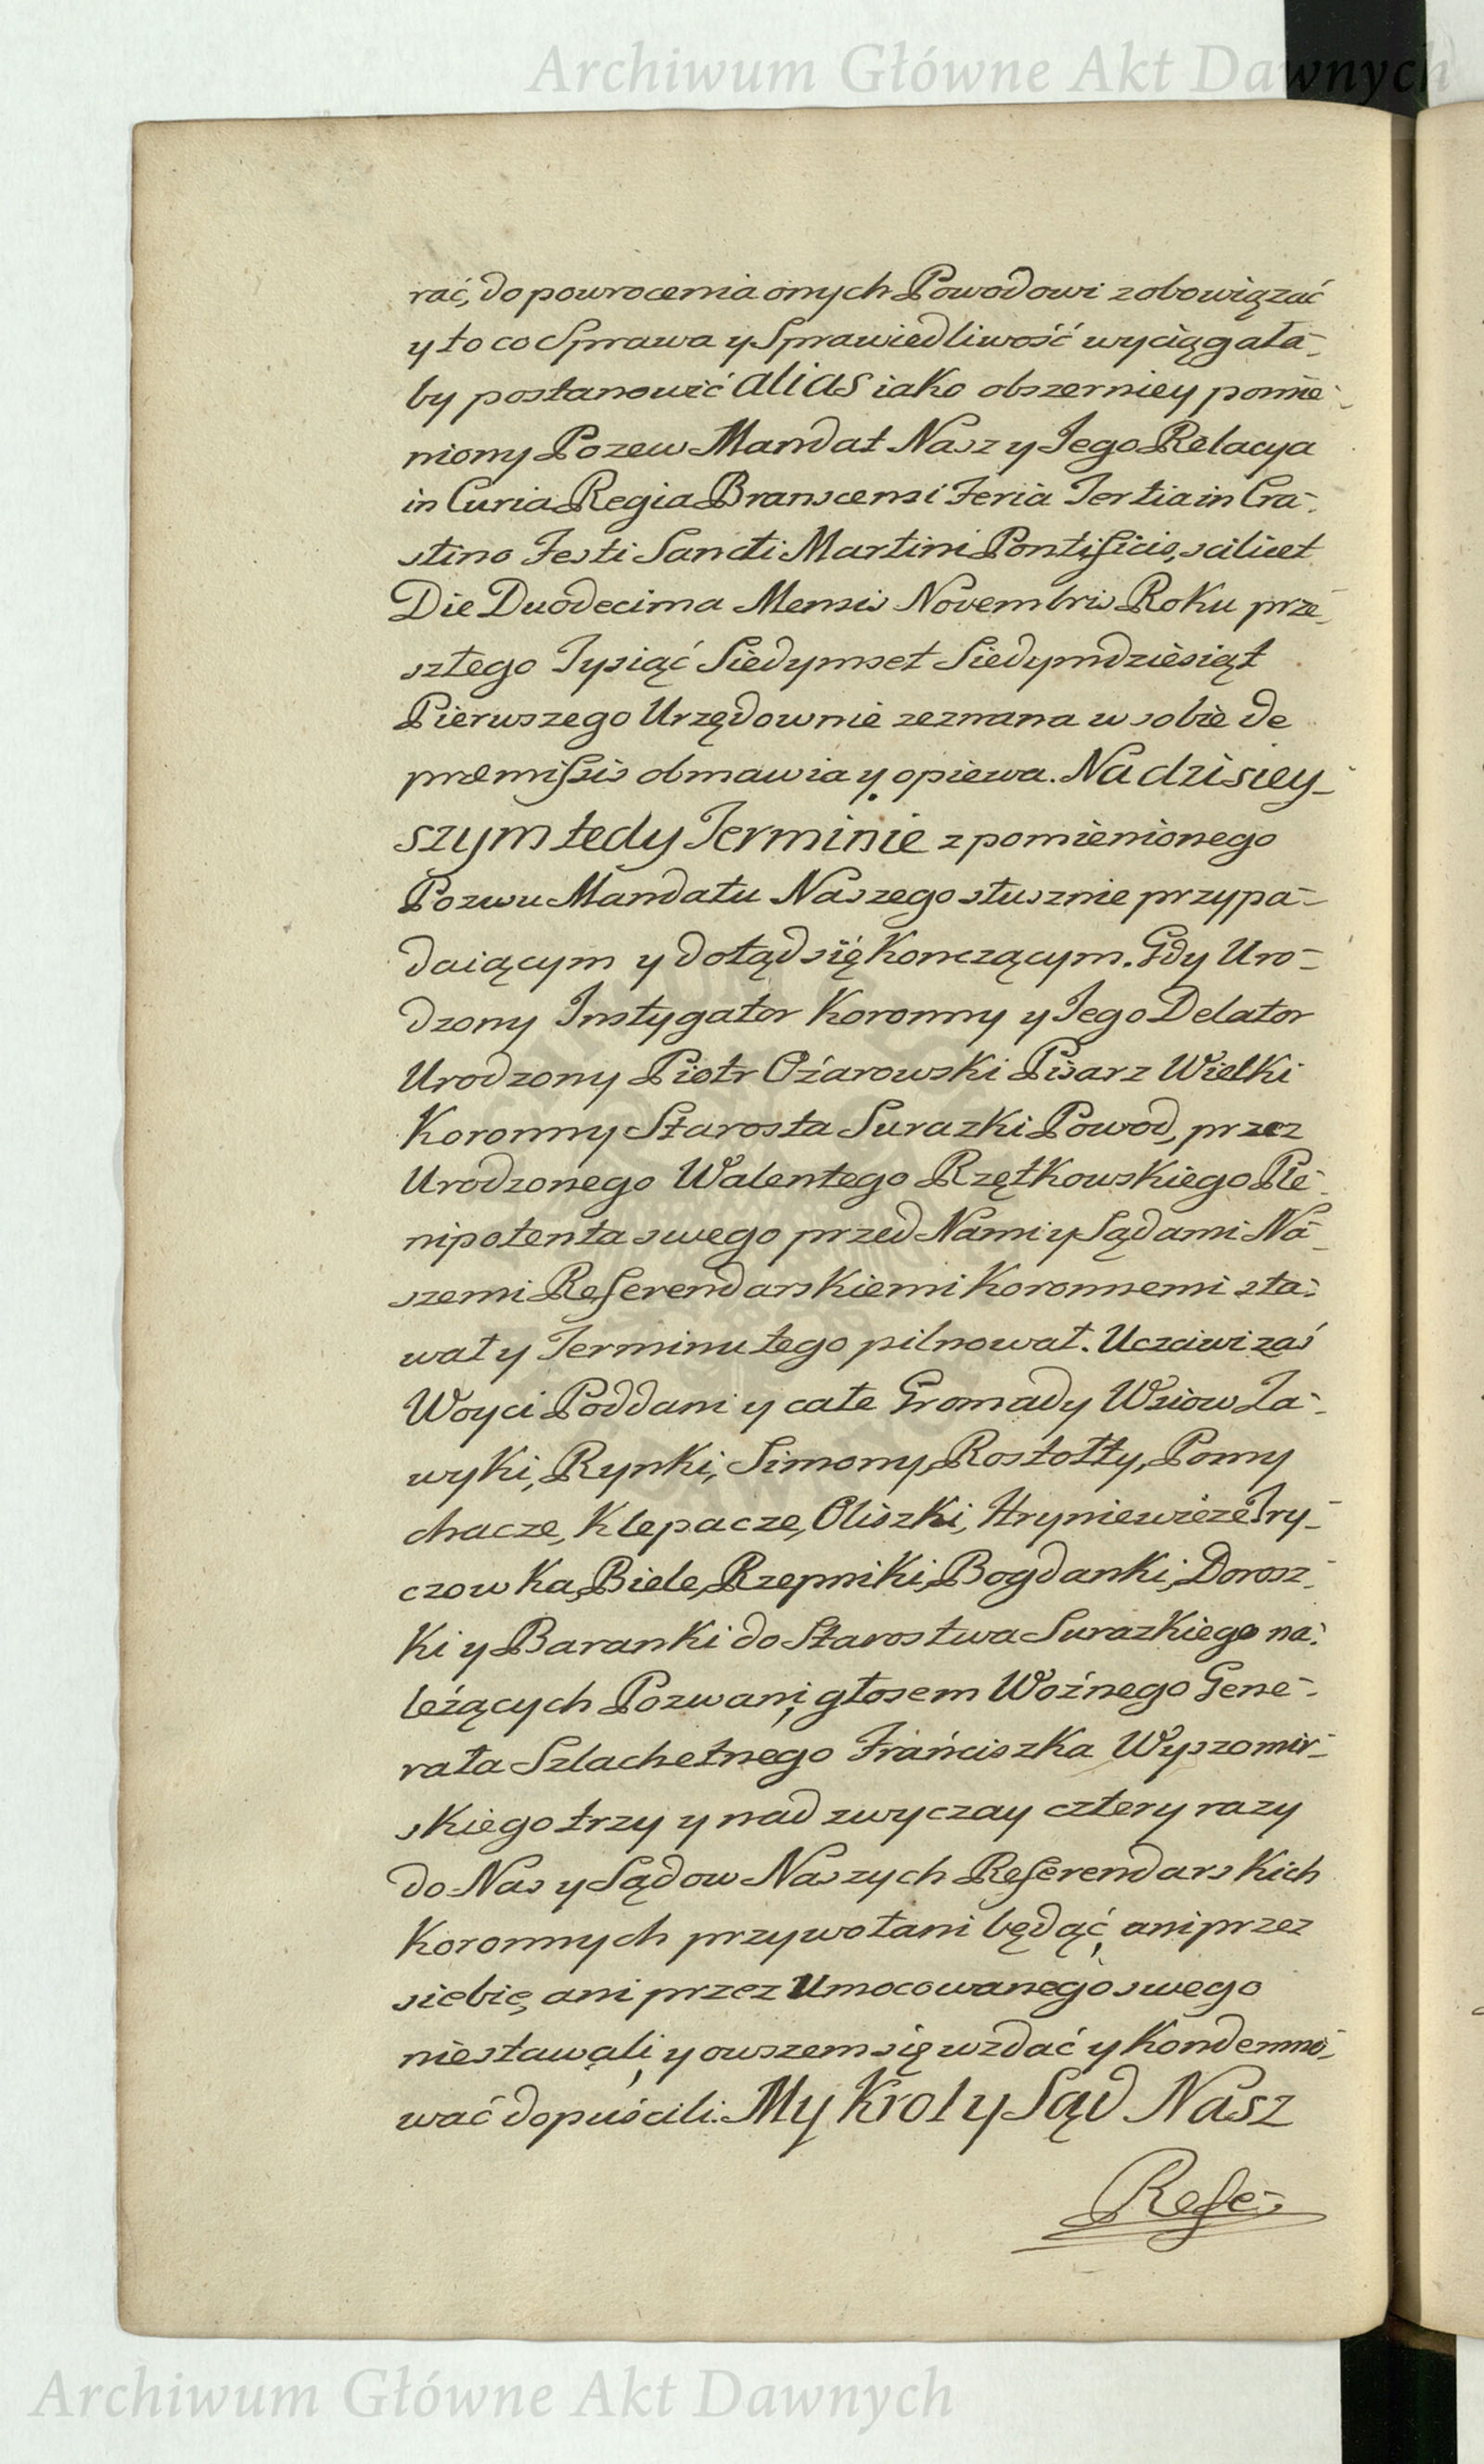 Archiwum Główne Akt Dawnych
rać, do powrocenia onych Powodowi zobowiązać
y to co Sprawa y Sprawiedliwość wyciągała-
by postanowić alias iako obszerniey pomie-
niony Pozew Mandat Nasz y Jego Relacya
in Curia Regia Branscensi Feria Tertia in Cra-
stino Festi Sancti Martini Pontificis, scilicet
Die Duodecima Mensis Novembris Roku prze-
szłego Tysiąć Siedymset Siedymdziesiąt
Pierwszego Urzędownie zeznana w sobie de
præmissis obmawia y opiewa. Na dzisiey-
szym tedy Terminie z pomienionego
Pozwu Mandatu Naszego słusznie przypa-
daiącym y dotąd się konczącym. Gdy Uro-
dzony Instygator Koronny y Jego Delator
Urodzony Piotr Ożarowski Pisarz Wielki
Koronny Starosta Surazki Powod, przez
Urodzonego Walentego Rzętkowskiego Ple-
nipotenta swego przed Nami y Sądami Na-
szemi Referendarskiemi Koronnemi sta-
wał y Terminu tego pilnował. Uczciwi zaś
Woyci Poddani y całe Gromady Wsiow Za-
wyki, Rynki, Simony, Rostołty, Pomy
chacze, Klepacze, Oliszki, Hryniewicze Try-
czowka, Biele, Rzepniki, Bogdanki, Dorosz-
ki y Baranki do Starostwa Surazkiego na-
leżących Pozwani, głosem Woźnego Gene-
rała Szlachetnego Franciszka Wyszomir-
skiego trzy y nad zwyczay cztery razy
do Nas y Sądow Naszych Referendarskich
Koronnych przywołani będąć, ani przez
siebie, ani przez Umocowanego swego
niestawali, y owszem się wzdać y kondemno-
wać dopuścili. My Krol y Sąd Nasz
Refe-
Archiwum Główne Akt Dawnych